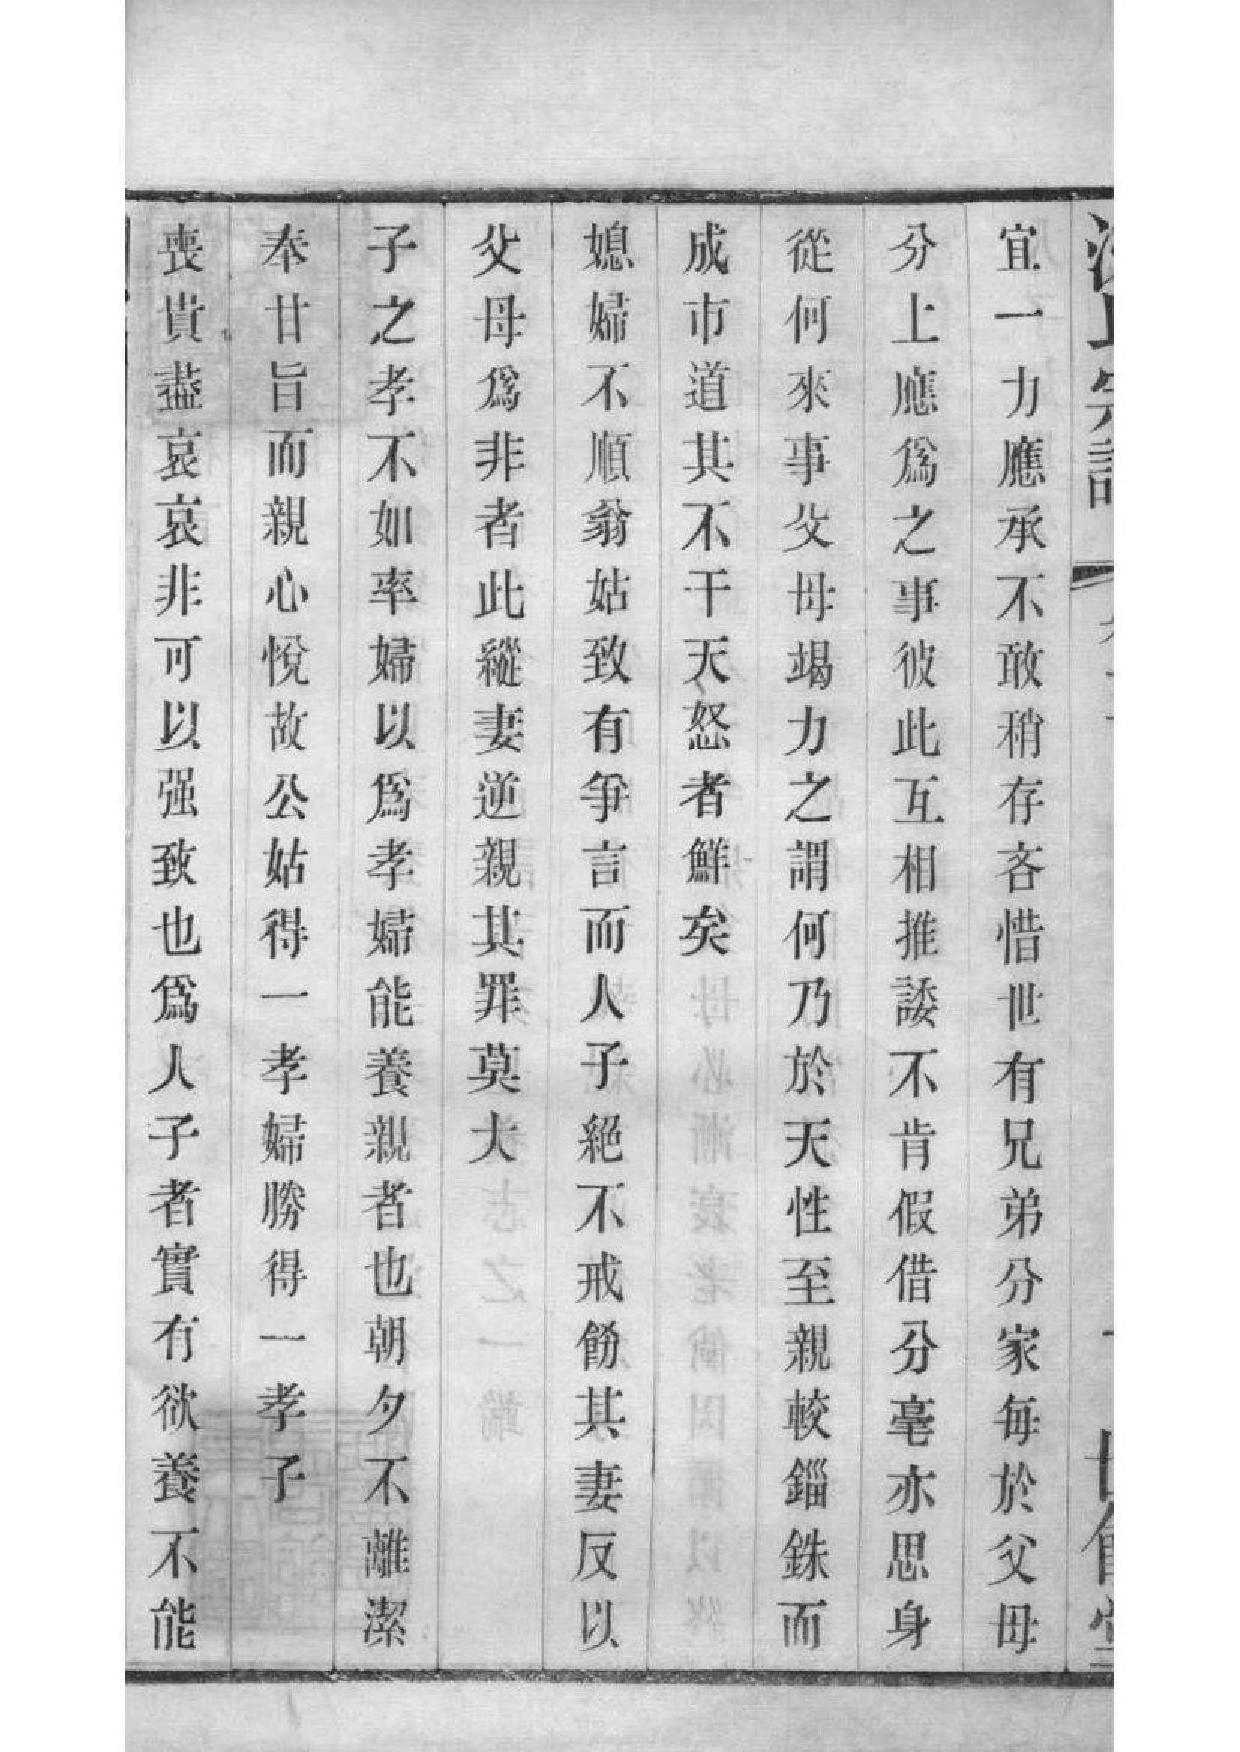 宜一力應承不敢稍存吝惜世有兄弟分家每於父母
分上應爲之事彼此互相推諉不肯假借分毫亦思身
從何來事父母竭力之謂何乃於天性至親較錙銖而
成市道其不干天怒者鮮矣
媳婦不順翁姑致有爭言而人子絕不戒飭其妻反以
父母爲非者此縱妻逆親其罪莫大
子之孝不如率婦以爲孝婦能養親者也朝夕不離潔
奉甘旨而親心悅故公姑得一孝婦勝得一孝子
喪貴盡哀哀非可以强致也爲人子者實有欲養不能